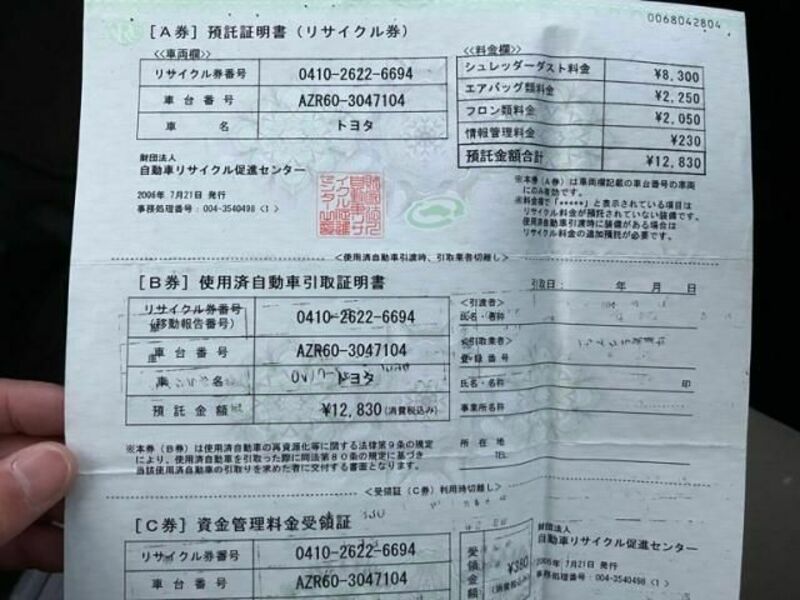 0068042804
[A券] 預託証明書(リサイクル券)
<<車両欄>>
リサイクル券番号 0410-2622-6694
車台番号 AZR60-3047104
車名 トヨタ
<<料金欄>>
シュレッダーダスト料金 ¥8,300
エアバッグ類料金 ¥2,250
フロン類料金 ¥2,050
情報管理料金 ¥230
預託金額合計 ¥12,830
財団法人
自動車リサイクル促進センター
2006年 7月21日 発行
事務処理番号:004-3540498 <1>
※本券(A券)は車両欄記載の車台番号の車両
にのみ有効です。
※料金欄で「*****」と表示されている項目は
リサイクル料金が預託されていない装備です。
使用済自動車引渡時に装備がある場合は
リサイクル料金の追加預託が必要です。
<使用済自動車引渡時、引取業者切離し>
[B券] 使用済自動車引取証明書
引取日: 年 月 日
リサイクル券番号
(移動報告番号) 0410-2622-6694
車台番号 AZR60-3047104
車名 トヨタ
預託金額 ¥12,830(消費税込み)
<引渡者>
氏名・名称
<引取業者>
登録番号
氏名・名称 印
事業所名称
所在地
TEL
※本券(B券)は使用済自動車の再資源化等に関する法律第9条の規定
により、使用済自動車を引取った際に同法第80条の規定に基づき
当該使用済自動車の引取りを求めた者に交付する書面となります。
<受領証(C券)利用時切離し>
[C券] 資金管理料金受領証
リサイクル券番号 0410-2622-6694
車台番号 AZR60-3047104
受領金額 ¥380
(消費税込み)
財団法人
自動車リサイクル促進センター
2006年 7月21日 発行
事務処理番号:004-3540498 <1>